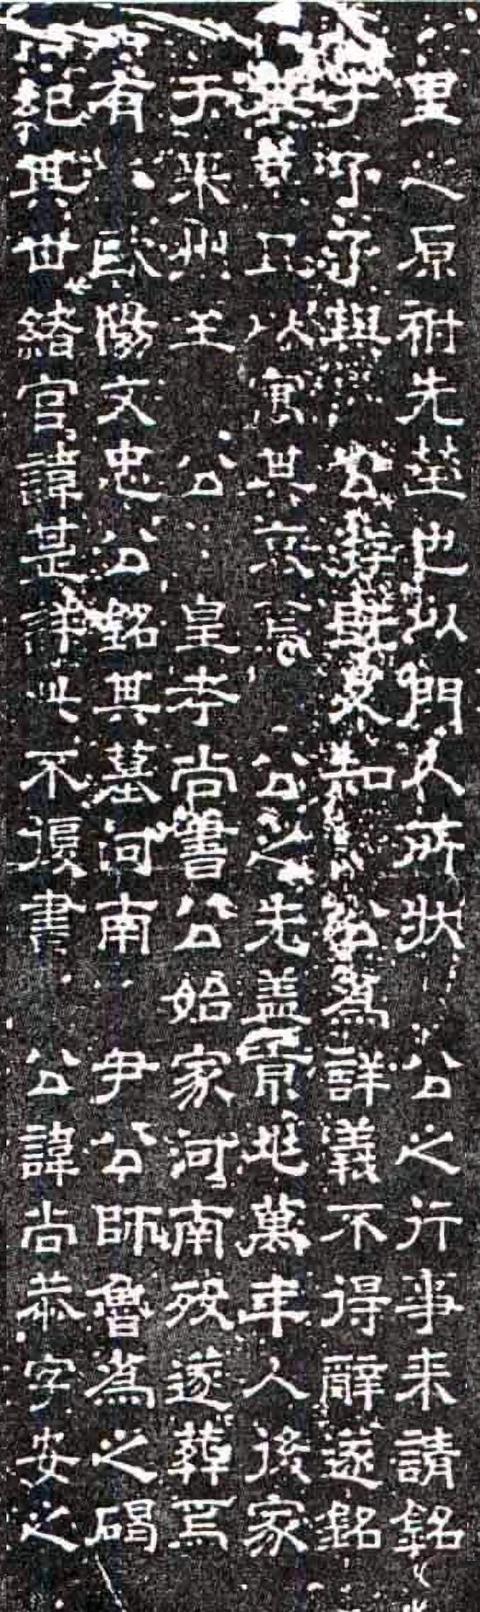 里之原祔先塋也以門人所狀 公之行事来請銘
予與 公游既久知 公爲詳義不得辭遂銘
以寘其哀焉 公之先蓋京兆萬年人後家
于 州至 公 皇考尚書公始家河南歿遂葬焉
有 歐陽文忠公銘其墓河南 尹公師魯爲之碣
紀其世緒官諱甚詳此不復書 公諱尚恭字安之